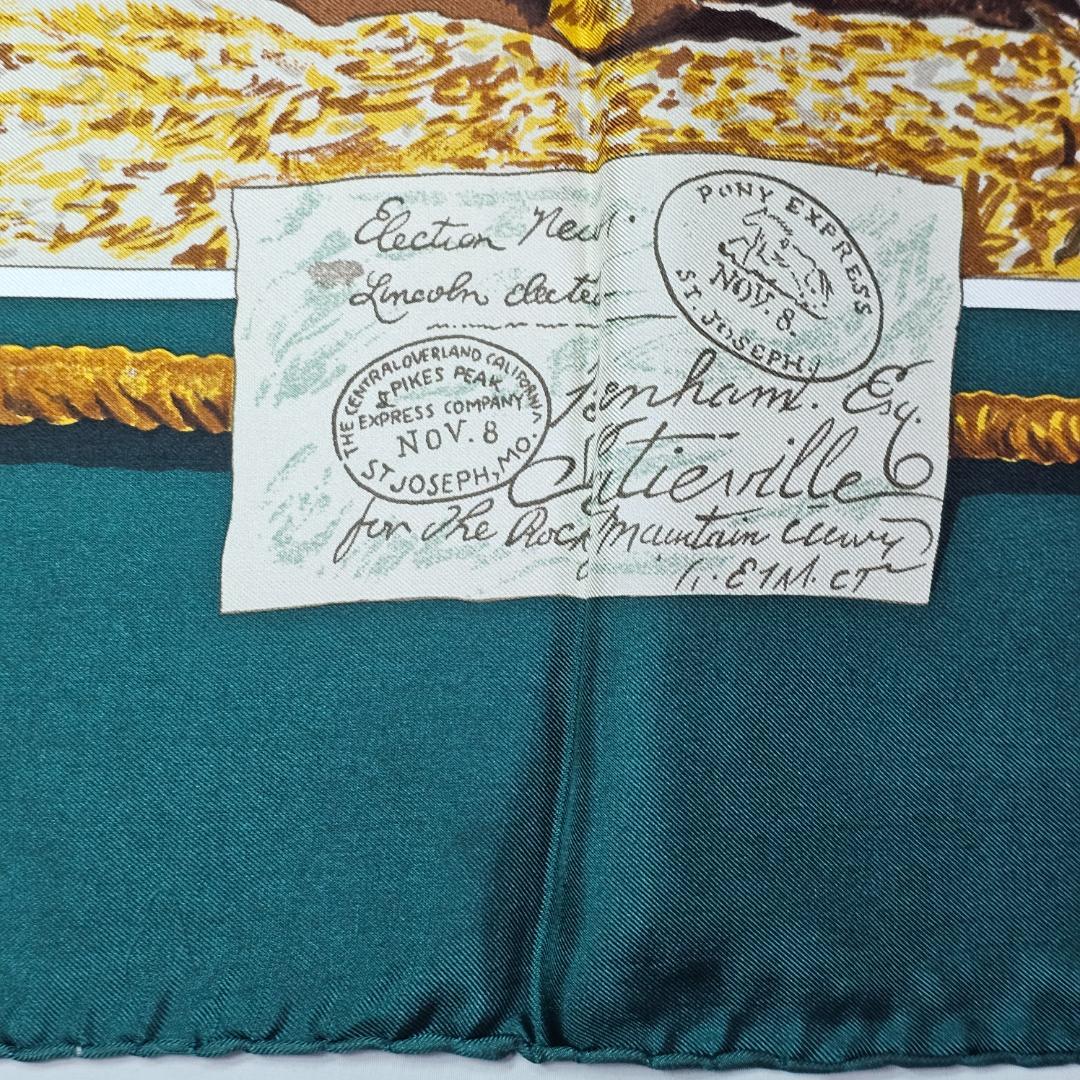 Election News.
Lincoln elected
PONY EXPRESS
NOV. 8.
ST. JOSEPH,
THE CENTRAL OVERLAND CALIFORNIA
& PIKES PEAK
EXPRESS COMPANY
NOV. 8
ST JOSEPH, MO.
Esq.
for the Rocky Mountain